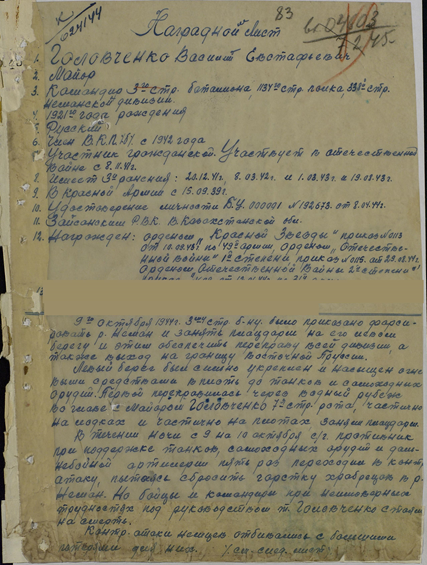 83
024144
Наградной Лист
1. Головченко Василий Евстафьевич
2. Майор
3. Командир 3го стр. батальона, 1134 стр. полка, 338й стр.
Неманской дивизии.
4. 1921 года рождения
5. Русский
6. Член В.К.П./б/. с 1942 года
7. Участник гражданской. Участвует в отечественной
войне с 8.11.41г.
8. Имеет 3 ранения: 20.12.41г. 8.03.42г. и 1.08.43г и 19.08.43г.
9. В Красной Армии с 15.09.39г.
10. Удостоверение личности БУ. 000001 №192673. от 8.04.44г.
11. Зайсанским РВК. В. Казахстанской обл.
12. Награжден: орденом "Красной Звезды" приказ №0113
по 49й армии, орденом "Отечествен-
ной войны" 1й степени приказ от 28.08.44г
Орденом "Отечественной Войны 2й степени"
13
9го октября 1944г. 3му стр. б-ну. было приказано форси-
ровать р. Неман и занять плацдарм на его левом
берегу и этим обеспечить переправу всей дивизии а
также выход на границу Восточной Пруссии.
Левый берег был сильно укреплен и насыщен огне-
выми средствами вплоть до танков и самоходных
орудий. Первой переправилась через водный рубеж
во главе с Майором Головченко 7я стр. рота, частично
на лодках и частично на плотах заняв плацдарм.
В течении ночи с 9 на 10 октября с/г. противник
при поддержке танков, самоходных орудий и даль-
небойной артилерии пять раз переходил в контр
атаку, пытаясь сбросить горстку храбрецов в р-
Неман. Но бойцы и командиры при неимоверных
трудностях под руководством т. Головченко стояли
на смерть.
Контр.атаки немцев отбивались с большими
потерями для них. /см. след. лист/